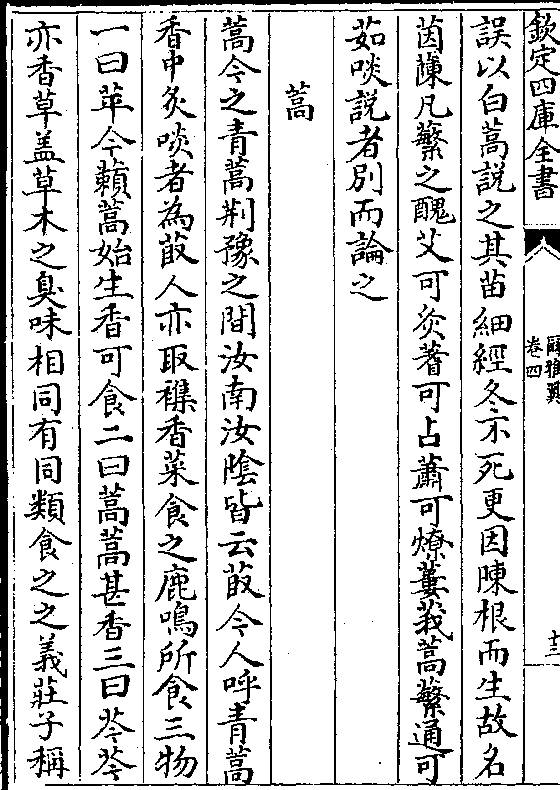 欽定四庫全書
爾雅翼
卷四
十三
誤以白蒿說之其苗細經冬不死更因陳根而生故名
茵蔯凡蘩之醜艾可灸蓍可占蕭可燎蔞莪蒿蘩通可
茹啖説者別而論之
蒿
蒿今之青蒿荆豫之間汝南汝隂皆云菣今人呼青蒿
香中炙啖者為菣人亦取襍香菜食之鹿鳴所食三物
一曰苹今藾蒿始生香可食二曰蒿蒿甚香三曰芩芩
亦香草盖草木之臭味相同有同類食之之義莊子稱